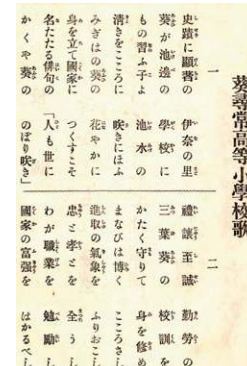 葵尋常高等小學校歌
一
史蹟に顯著の 伊奈の里
葵が池邊の 學校に
もの習ふ子よ 池水の
清きをこころに 咲きにほふ
みぎはの葵の 花やかに
身を立て國家に つくすこそ
名たたる俳句の 「人も世に
かくや葵の のぼり咲き」
二
禮讓至誠 勤勞の
三葉葵の 校訓を
かたく守りて 身を修め
まなびは博く こころざし
進取の氣象を ふりおこし
忠と孝とを 全うし
わが職業を 勉勵し
國家の富强を はかるべし